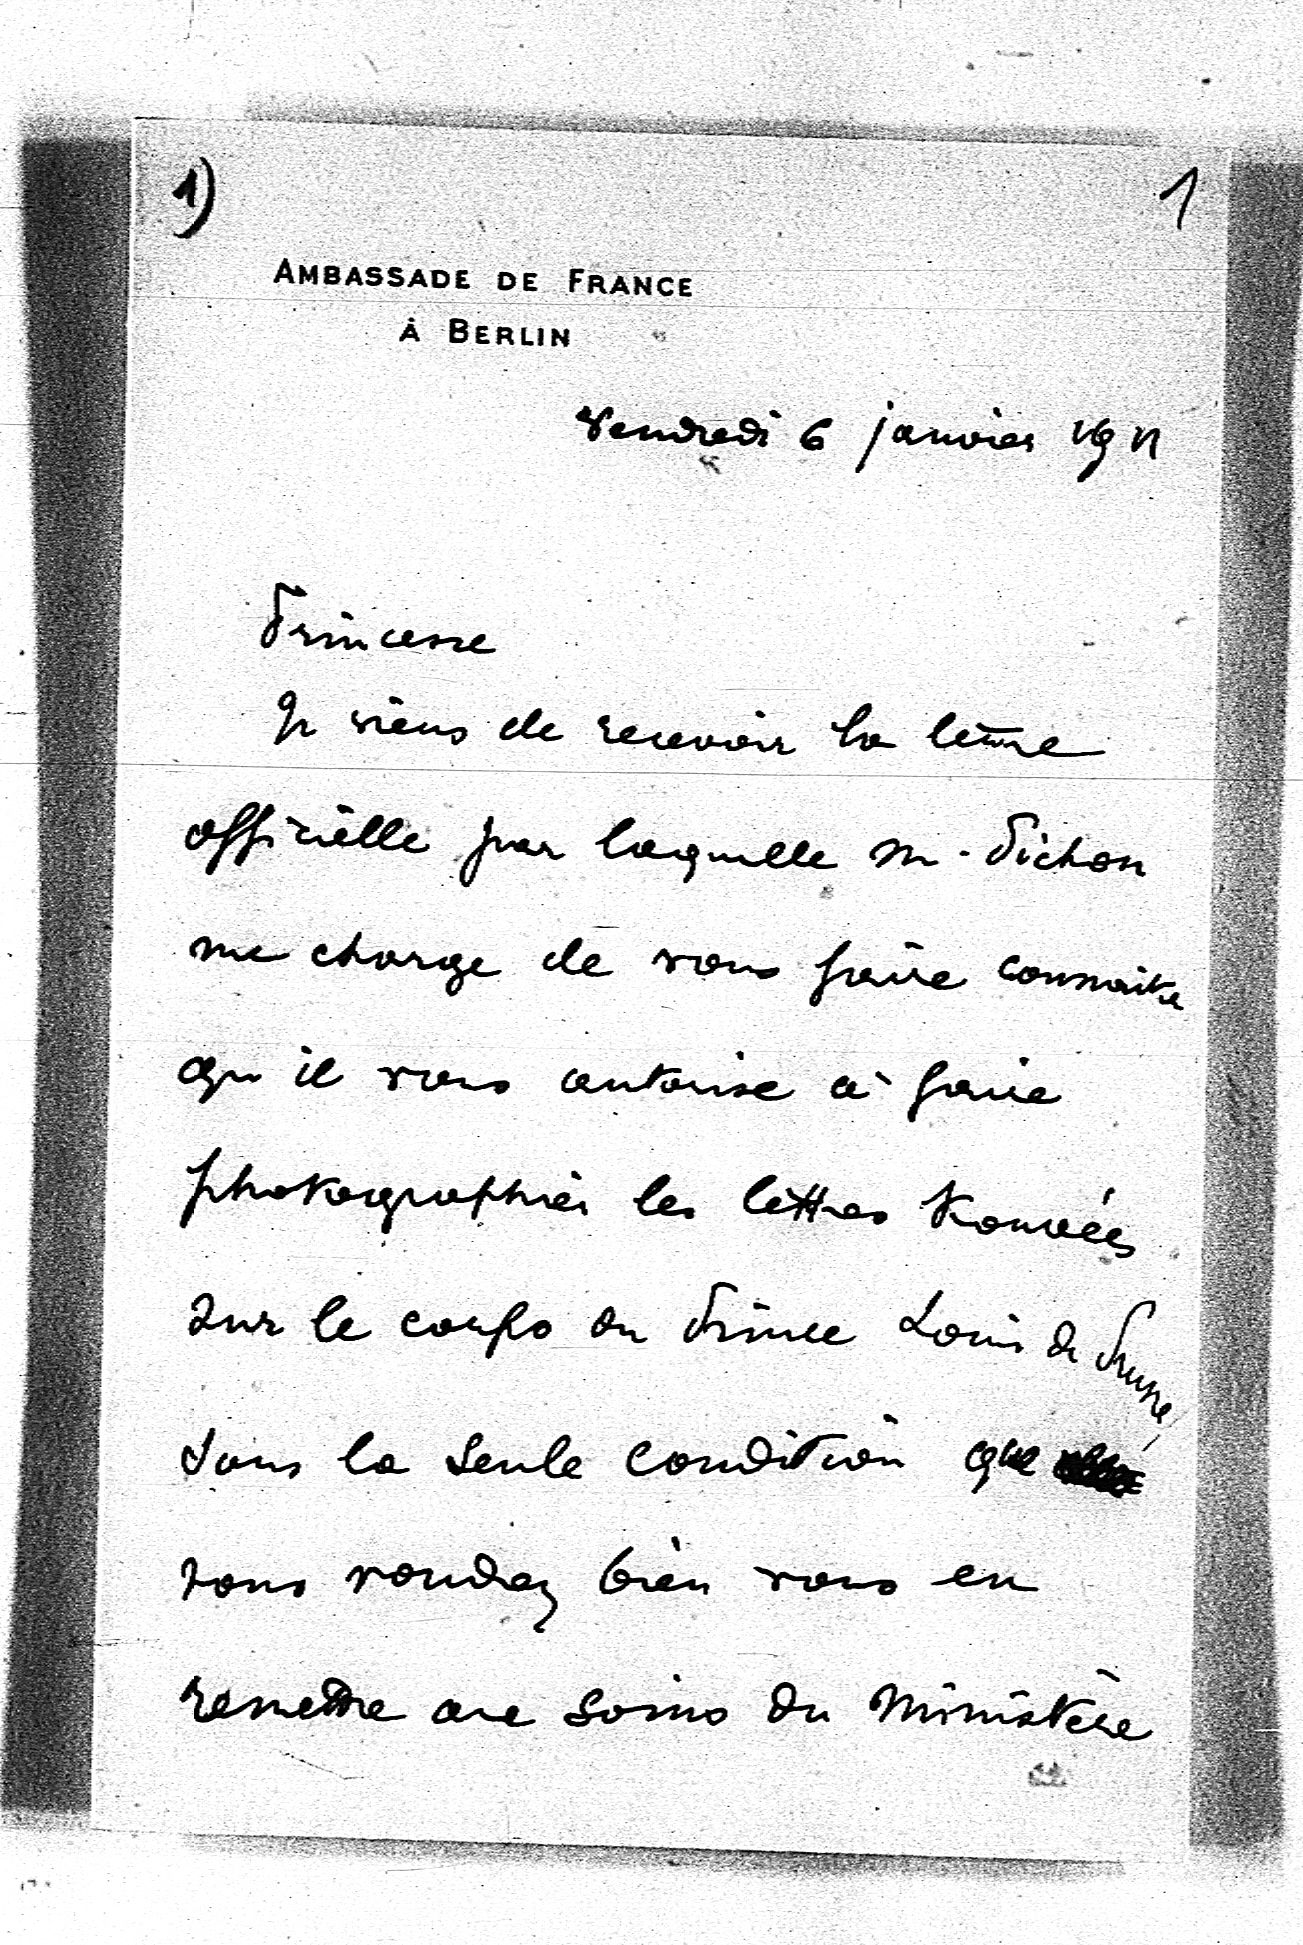 1)
1
AMBASSADE DE FRANCE
À BERLIN
Vendredi 6 janvier 1911
Princesse
Je viens de recevoir la lettre
officielle par laquelle M. Pichon
me charge de vous faire connaitre
qu'il vous autorise à faire
photographier les lettres trouvées
sur le corps du Prince Louis de Prusse
sous la seule condition que
vous voudrez bien vous en
remettre aux soins du Ministère